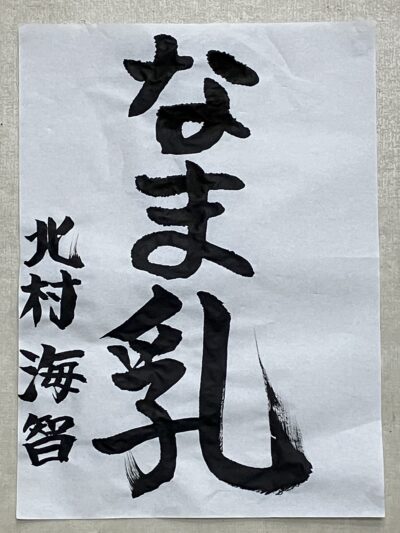 なま乳
北村海智